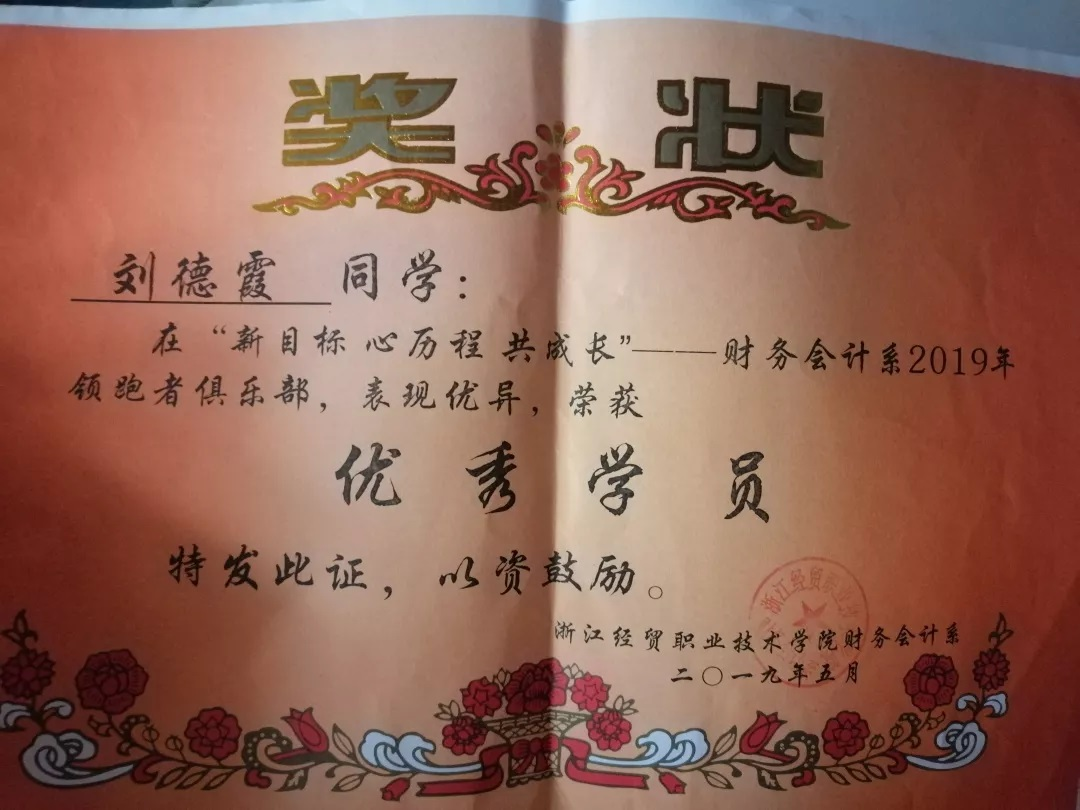 奖状
刘德霞 同学：
在“新目标 心历程 共成长”———财务会计系2019年
领跑者俱乐部，表现优异，荣获
优秀学员
特发此证，以资鼓励。
浙江经贸职业技术学院财务会计系
二〇一九年五月
浙江经贸职业技